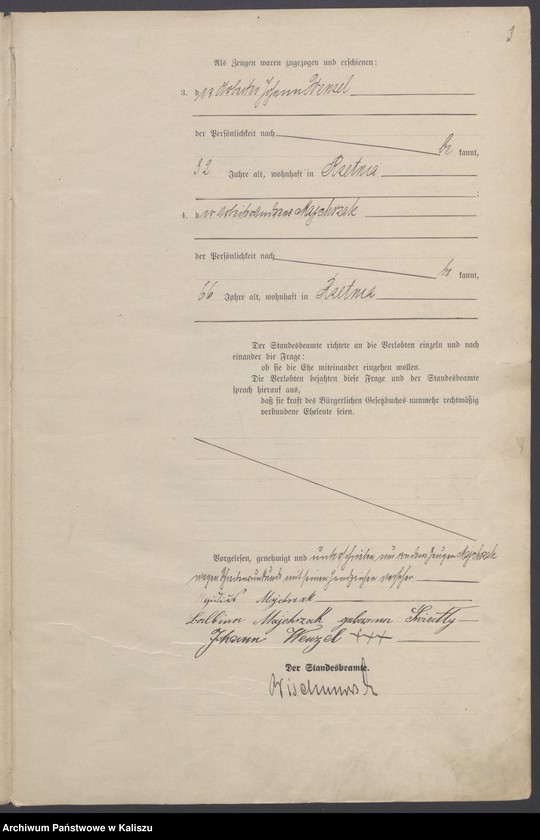 3
Als Zeugen waren zugezogen und erschienen:
3. der Arbeiter Johann Wenzel
der Persönlichkeit nach be kannt,
32 Jahre alt, wohnhaft in Raetnia
;
4. der Arbeiter Andreas Majchrzak
der Persönlichkeit nach be kannt,
66 Jahre alt, wohnhaft in Raetnia
Der Standesbeamte richtete an die Verlobten einzeln und nach
einander die Frage:
ob sie die Ehe miteinander eingehen wollen.
Die Verlobten bejahten diese Frage und der Standesbeamte
sprach hierauf aus,
daß sie kraft des Bürgerlichen Gesetzbuches nunmehr rechtmäßig
verbundene Eheleute seien.
Vorgelesen, genehmigt und unterschrieben, und von dem Zeugen Majchrzak
wegen Schreibensunkunde mit seinem Handzeichen versehen
Majchrzak
Balbina Majchrzak geborene
Johann Wenzel +++
Der Standesbeamte.
Archiwum Państwowe w Kaliszu